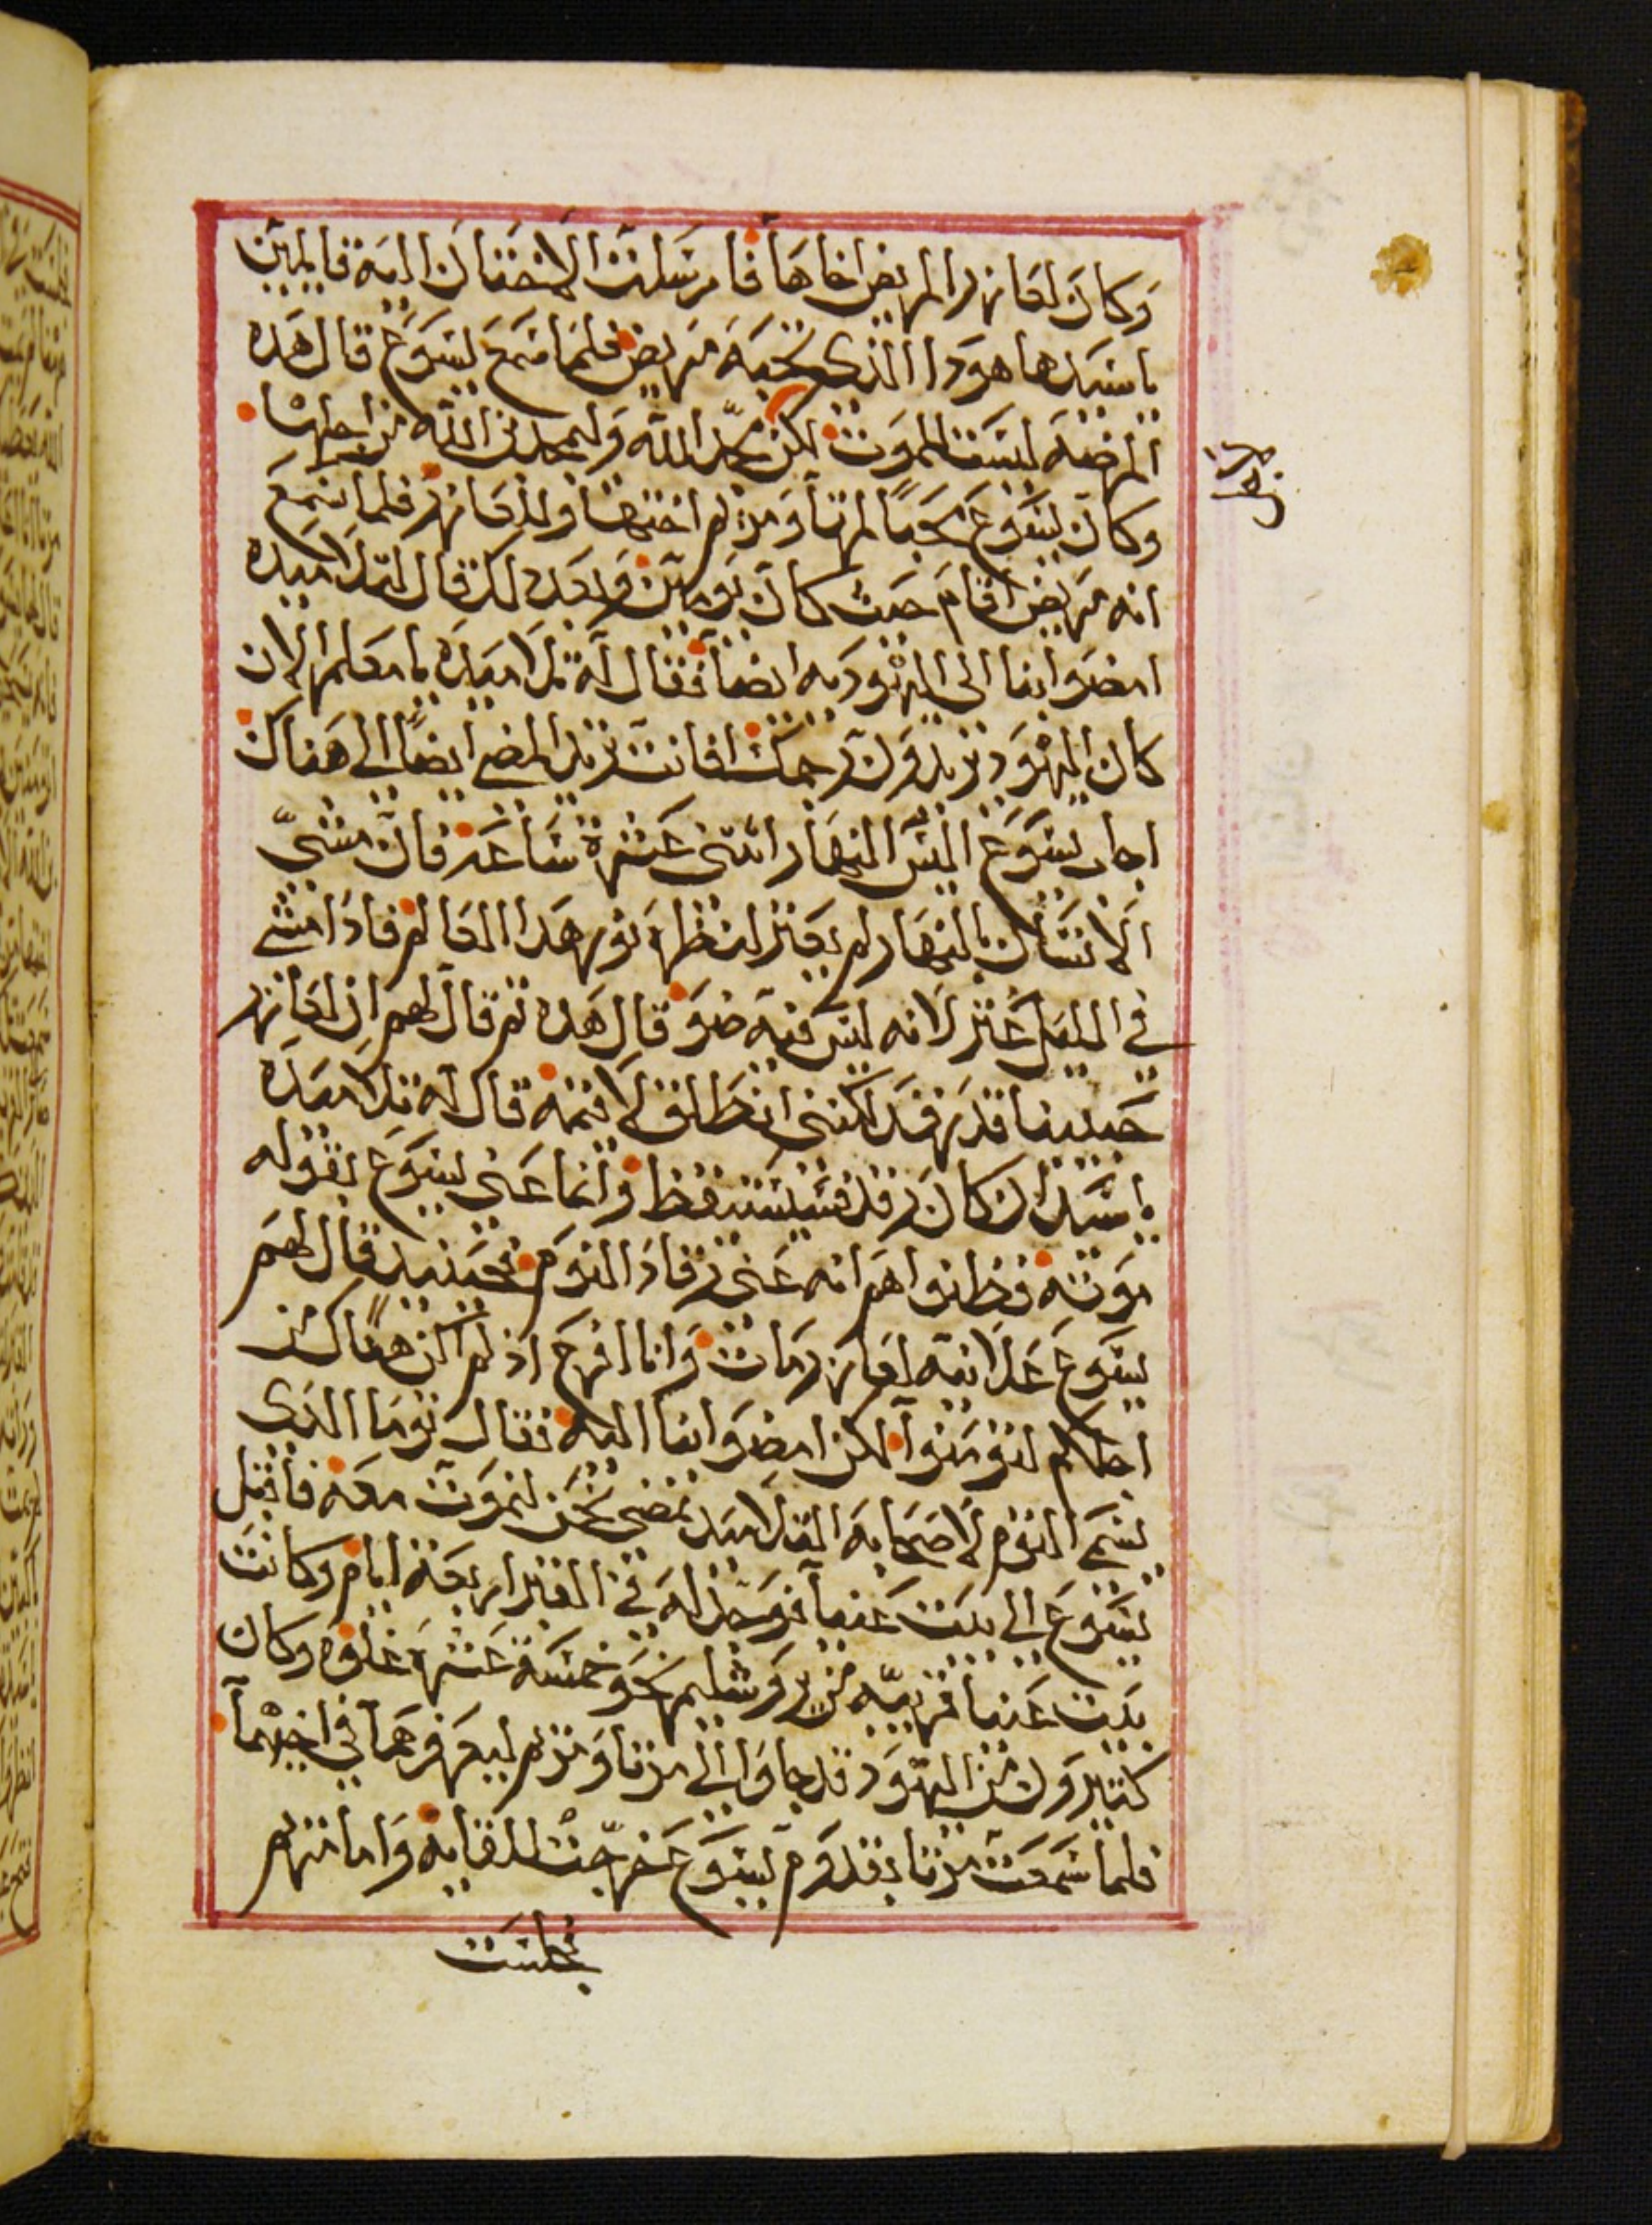 وكان لعازر المريض اخاها فارسلت الاختان اليه قايلتين
يا سيد ها هودا الذي تحبه مريض فلما سمع يسوع قال هده
المرضه ليست للموت لكن لمجد الله وليمجد بن الله من اجلها
وكان يسوع محباً لمرتا ومريم اختها ولعازر فلما سمع
انه مريض اقام حيث كان يومين وبعد دلك قال لتلاميده
امضوا بنا الى اليهوديه ايضاً فقال له تلاميده يا معلم الان
كان اليهود يريدون رجمك افانت تريد المضي ايضاً الى هناك
اجاب يسوع اليس النهار اثنتى عشرة ساعه فان مشىّ
الانسان بالنهار لم يعثر لنظره نور هدا العالم فادا مشى
في الليل عثر لانه ليس فيه ضو قال هده ثم قال لهم ان لعازر
حبيبنا قد رقد لكننى انطلق لاقيمه قال له تلاميده
يا سيد ان كان رقد فسيستيقظ وانما عنى يسوع بقوله
موته فظنوا هم انه عنى رقاد النوم فحينيد قال لهم
يسوع علانيه لعازر مات وانا افرح اذ لم اكن هناك من
اجلكم لتومنوا لكن امضوا بنا اليه فقال توما الذى
يسمى التوم لاصحابه التلاميد نمضي نحن لنموت معه فاقبل
يسوع الى بيت عنيا فوجد له في القبر اربعة ايام وكانت
بيت عنيا قريبه من يروشليم نحو خمسة عشر غلوه وكان
كثيرون من اليهود قد جاوا الى مرتا ومريم ليعزوهما في اخيهما
فلما سمعت مرتا بقدوم يسوع خرجت للقايه واما مريم
فجلست